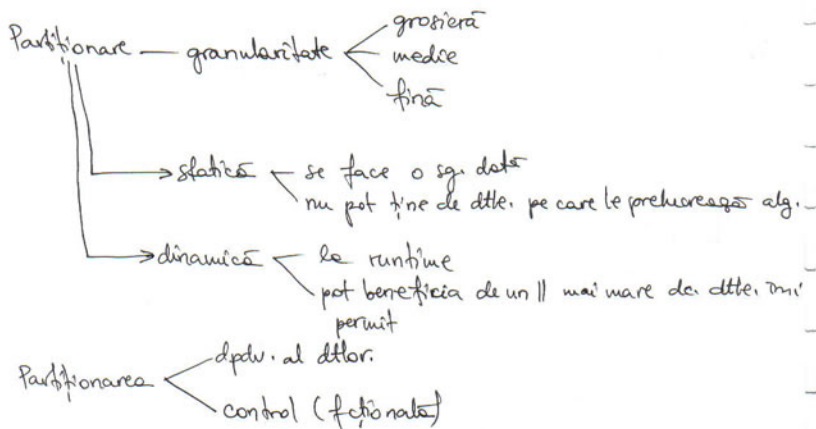 Partiționare — granularitate
grosieră
medie
fină
statică
se face o sg. dată
nu pot ține de dtle. pe care le prelucrează alg.
dinamică
la runtime
pot beneficia de un || mai mare dc. dtle. îmi
permit
Partiționarea
dpdv. al dtlor.
control (fcțională)